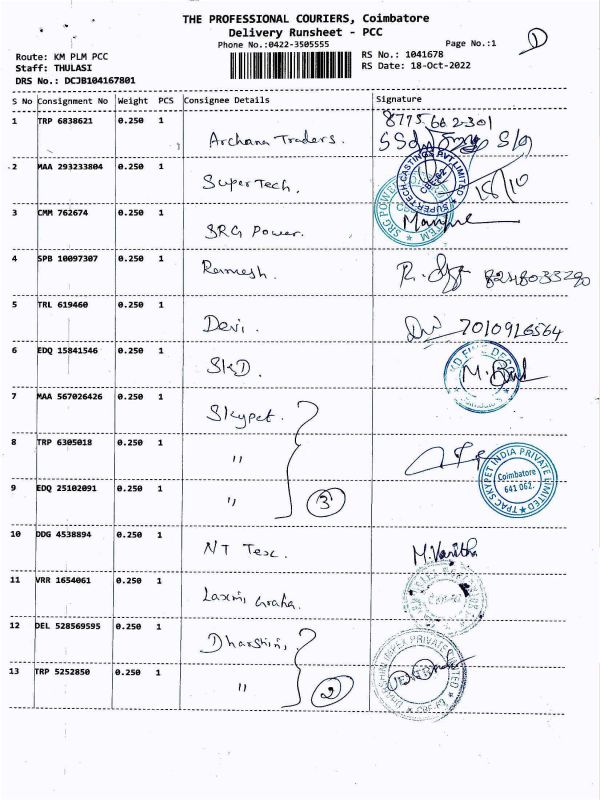 THE PROFESSIONAL COURIERS, Coimbatore
Delivery Runsheet - PCC
Phone No.:0422-3505555
Page No.:1
1
Route: KM PLM PCC
RS No.: 1041678
Staff: THULASI
RS Date: 18-Oct-2022
DRS No.: DCJB104167801
S No Consignment No Weight PCS Consignee Details Signature
1 TRP 6838621 0.250 1 Archana Traders. 8775662301
2 MAA 293233804 0.250 1 SuperTech. 18/10
SUPER TECH CASTINGS PVT. LIMITED
3 CMM 762674 0.250 1 SRG Power.
SRG POWER
4 SPB 10097307 0.250 1 Ramesh. 8248033280
5 TRL 619460 0.250 1 Devi. 7010916564
6 EDQ 15841546 0.250 1 SKD.
7 MAA 567026426 0.250 1 Skypet.
8 TRP 6305018 0.250 1 "
TPAC SKYPET INDIA PRIVATE LIMITED
Coimbatore
641 062.
9 EDQ 25102091 0.250 1 " 3
10 DDG 4538894 0.250 1 NT Tex.
11 VRR 1654061 0.250 1 Laxmi Graha.
12 DEL 528569595 0.250 1 Dharshini,
13 TRP 5252850 0.250 1 " 2
IMPEX PRIVATE LIMITED